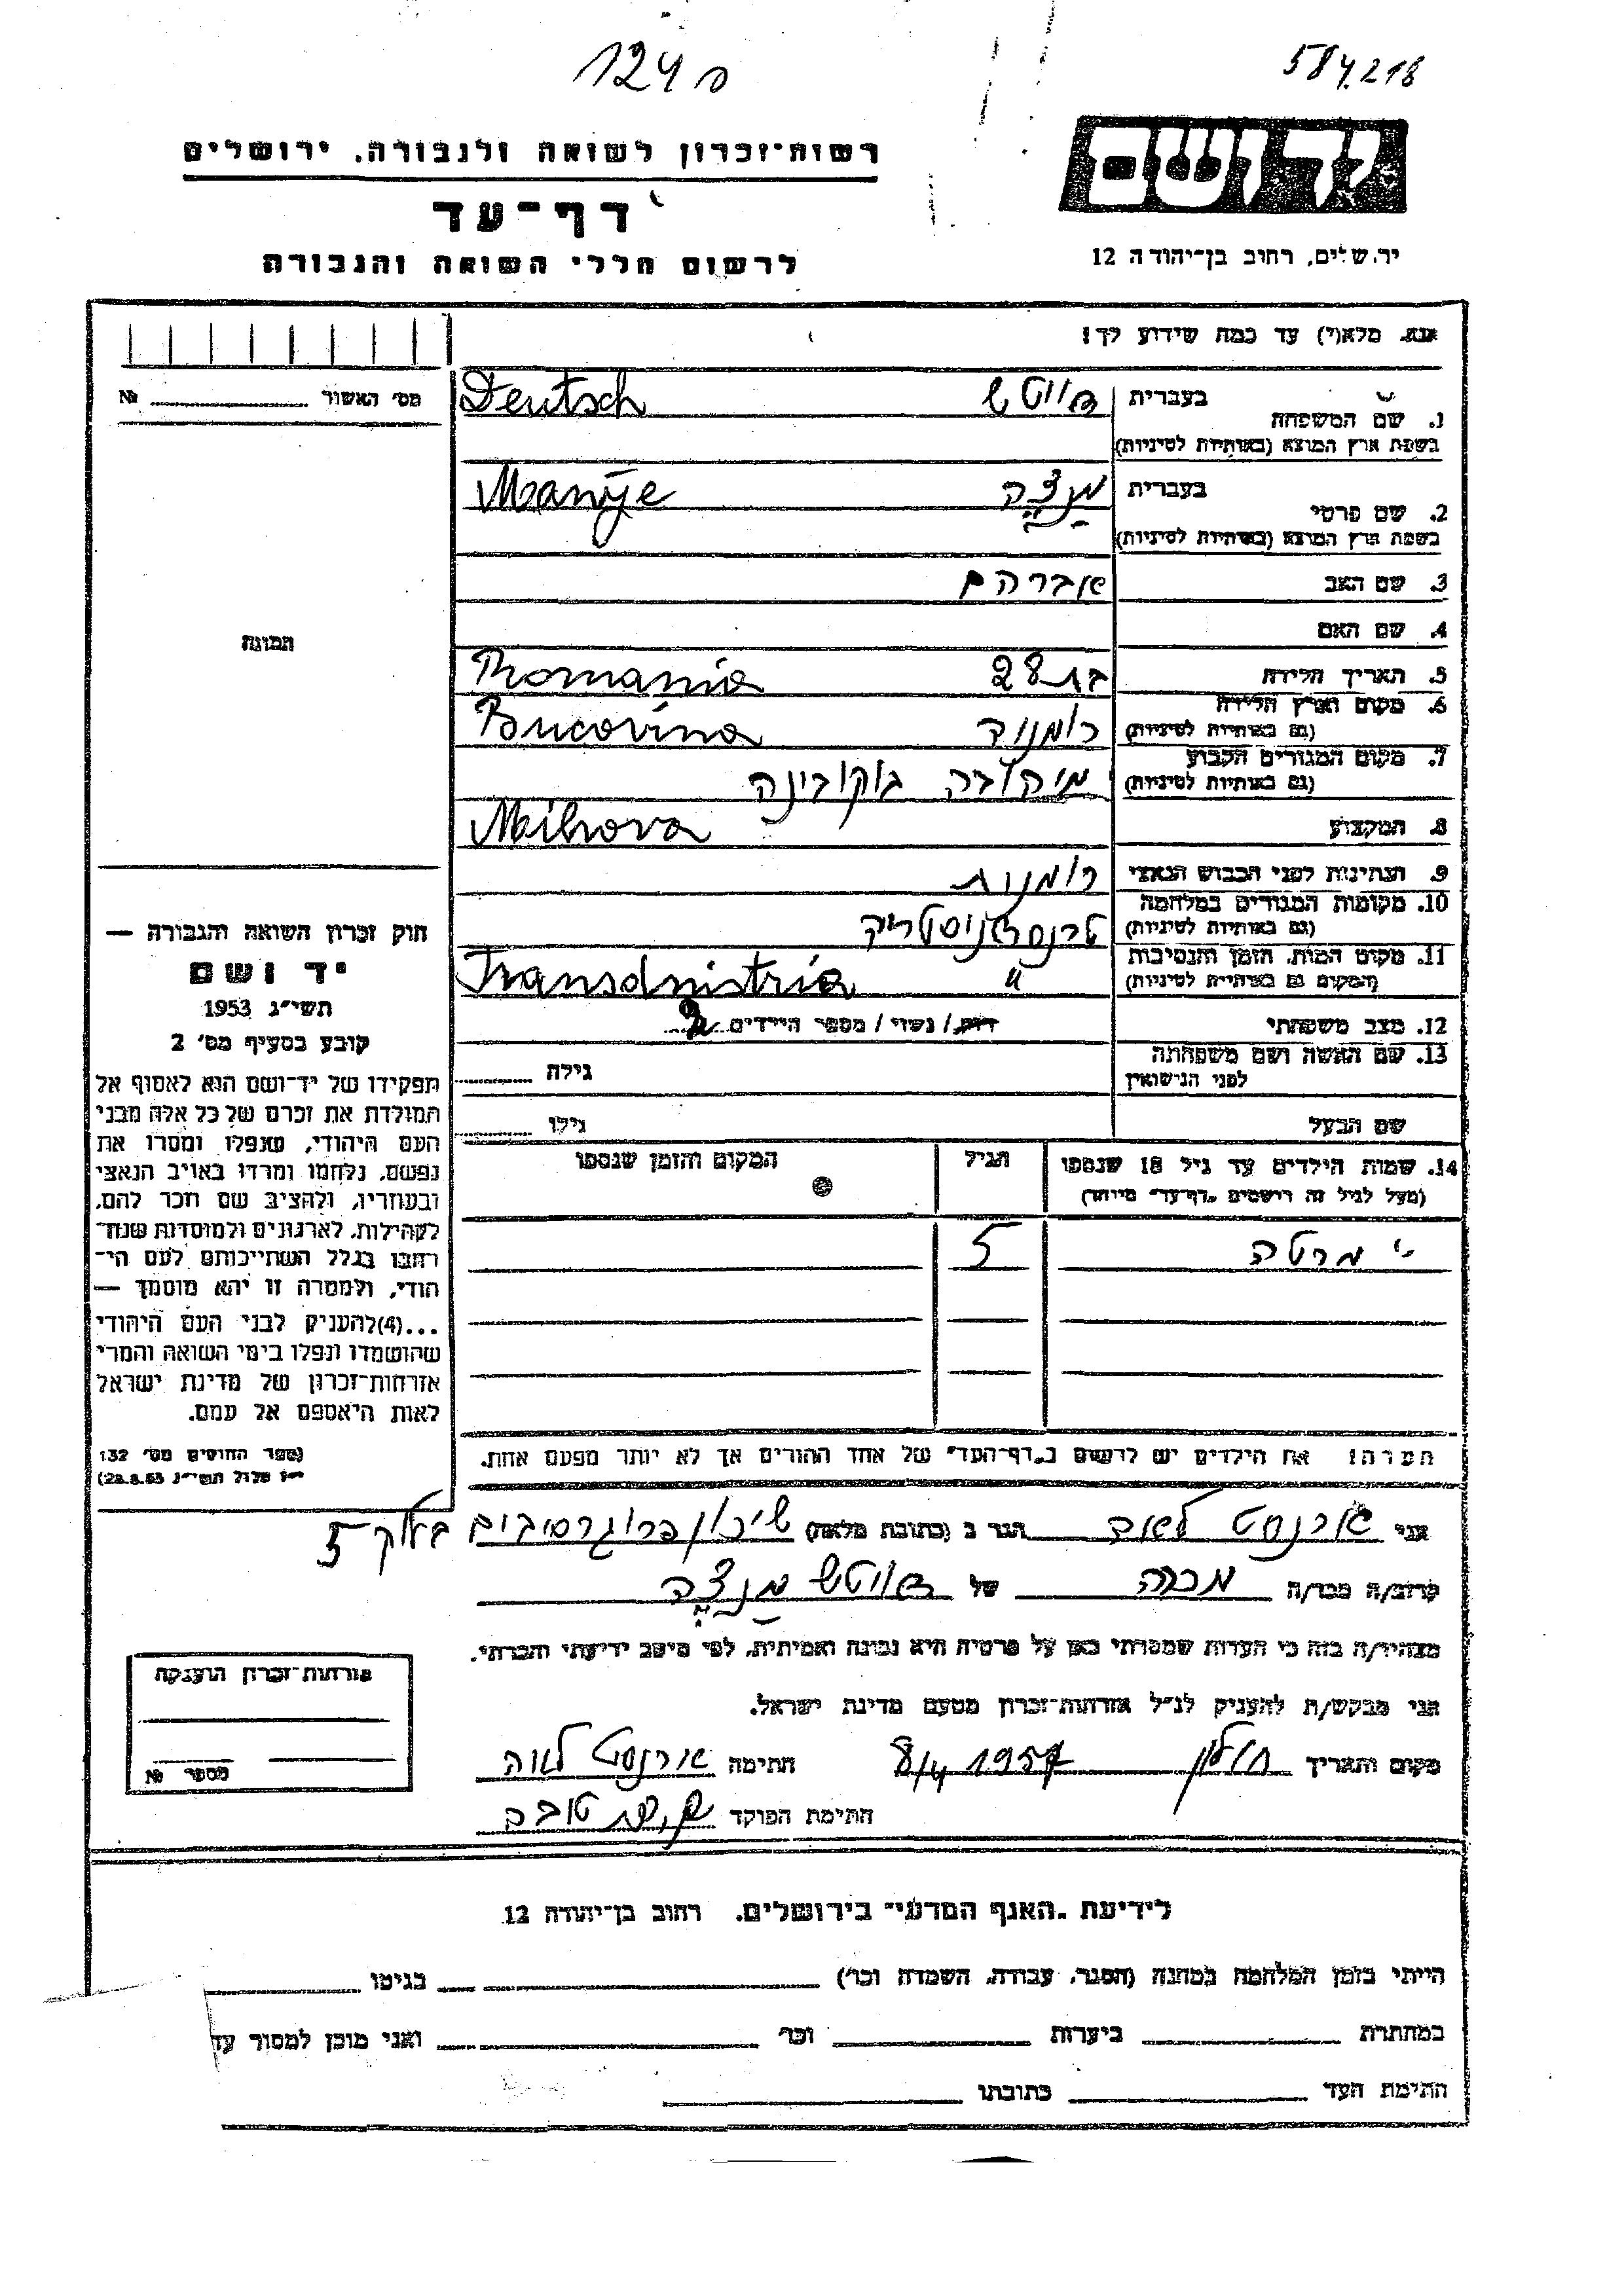 124 ס
584.218
רשות־זכרון לשואה ולגבורה, ירושלים
דף־עד
לרשום חללי השואה והגבורה
יד ושם
ירושלים, רחוב בן־יהודה 12
אנא, מלא(י) עד כמה שידוע לך!
מס׳ האשור №
1. שם המשפחה בעברית דויטש Deutsch
בשפת ארץ המוצא (באותיות לטיניות)
2. שם פרטי בעברית מנציה Manije
בשפת ארץ המוצא (באותיות לטיניות)
3. שם האב אברהם
4. שם האם
5. תאריך הלידה בת 28 Romania
6. מקום וארץ הלידה (גם באותיות לטיניות) Bucovina
7. מקום המגורים הקבוע (גם באותיות לטיניות) מיהובה בוקובינה
8. המקצוע Mihova
9. הנתינות לפני הכבוש הנאצי
10. מקומות המגורים במלחמה (גם באותיות לטיניות)
11. מקום המות, הזמן והנסיבות (המקום גם באותיות לטיניות) " Transdnistria
12. מצב משפחתי רווק / נשוי / מספר הילדים 2
13. שם האשה ושם משפחתה לפני הנישואין גילה
שם הבעל גילו
14. שמות הילדים עד גיל 18 שנספו הגיל המקום והזמן שנספו
(מעל לגיל זה רושמים "דף־עד" מיוחד)
מרטה 5
הערה! את הילדים יש לרשום ב"דף־העד" של אחד ההורים אך לא יותר מפעם אחת.
התמונה
חוק זכרון השואה והגבורה —
יד ושם
תשי"ג 1953
קובע בסעיף מס׳ 2
תפקידו של יד־ושם הוא לאסוף אל
המולדת את זכרם של כל אלה מבני
העם היהודי, שנפלו ומסרו את
נפשם, נלחמו ומרדו באויב הנאצי
ובעוזריו, ולהציב שם וזכר להם,
לקהילות, לארגונים ולמוסדות שנח־
רבו בגלל השתייכותם לעם הי־
הודי, ולמטרה זו יהא מוסמך —
...(4)להעניק לבני העם היהודי
שהושמדו ונפלו בימי השואה והמרי
אזרחות־זכרון של מדינת ישראל
לאות היאספם אל עמם.
(ספר החוקים מס׳ 132
י"ז אלול תשי"ג 28.8.53)
אני ארנסט לאוה הגר ב (כתובת מלאה) שיכון פרוגרסיבים בלוק 5
קרוב/ה מכר/ה מכרה של דויטש מנציה
מצהיר/ה בזה כי העדות שמסרתי כאן על פרטיה היא נכונה ואמיתית, לפי מיטב ידיעתי והכרתי.
אני מבקש/ת להעניק לנ"ל אזרחות־זכרון מטעם מדינת ישראל.
מקום ותאריך חולון 8/4 1957 חתימה ארנסט לאוה
חתימת הפוקד
אזרחות־זכרון הוענקה
מספר №
לידיעת "האגף המדעי" בירושלים, רחוב בן־יהודה 12
הייתי בזמן המלחמה במחנה (הסגר, עבודה, השמדה וכו׳) בגיטו
במחתרת ביערות וכו׳ ואני מוכן למסור עד
חתימת העד כתובתו